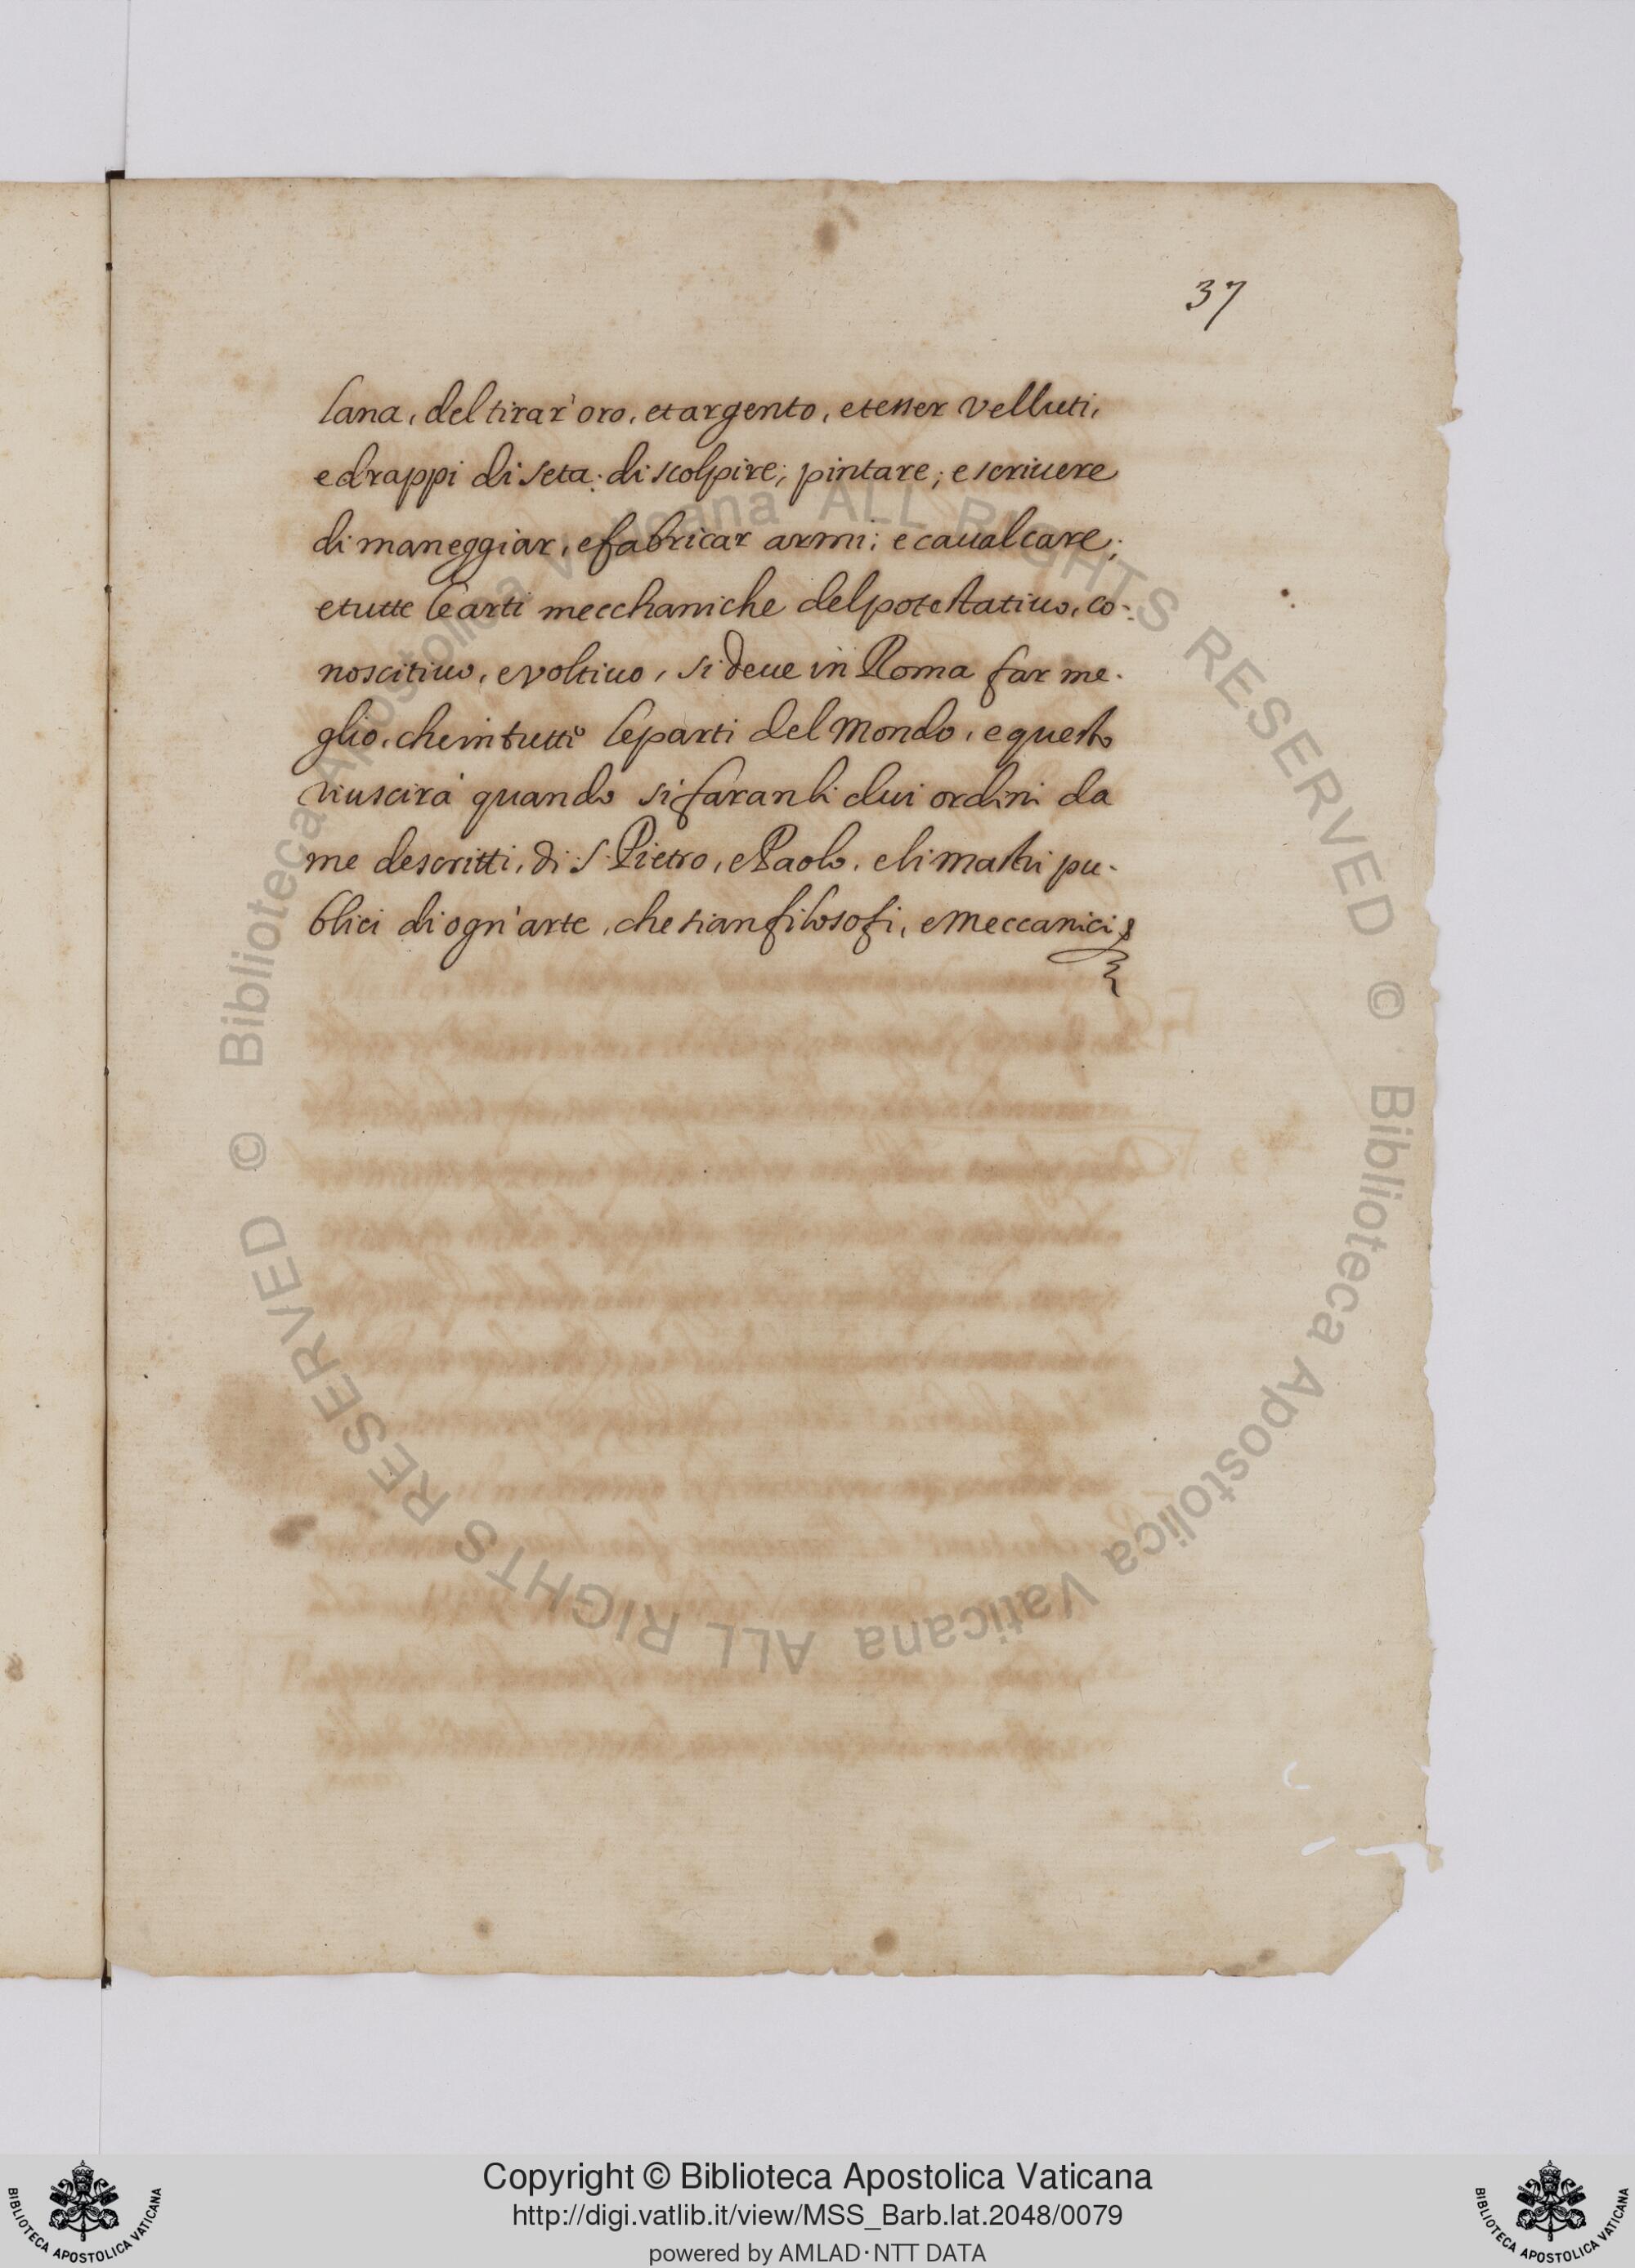 37
lana, del tirar' oro, et argento, e tesser velluti,
e drappi di seta: di scolpire; pintare; e scrivere
di maneggiar, e fabricar armi; e cavalcare;
e tutte le arti mecchaniche del potestativo, co-
noscitivo, e voltivo, si deve in Roma far me-
glio, che in tutti le parti del Mondo, e questo
riuscirà quando si faran li dui ordini da
me descritti, di S. Pietro, e Paolo, e li mastri pu-
blici di ogn'arte, che sian filosofi, e Meccanici
© Biblioteca Apostolica Vaticana ALL RIGHTS RESERVED
© Biblioteca Apostolica Vaticana ALL RIGHTS RESERVED
BIBLIOTECA APOSTOLICA VATICANA
Copyright © Biblioteca Apostolica Vaticana
http://digi.vatlib.it/view/MSS_Barb.lat.2048/0079
powered by AMLAD·NTT DATA
BIBLIOTECA APOSTOLICA VATICANA